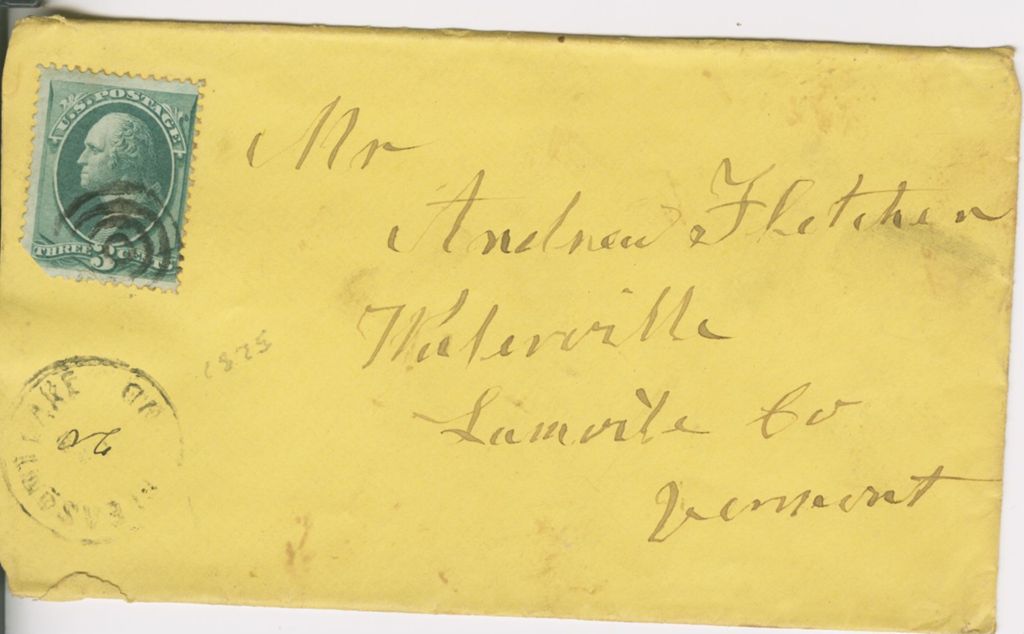 U.S. POSTAGE
THREE 3 CENTS
Mr
Andrew Fletcher
Waterville
Lamoile Co
Vermont
20